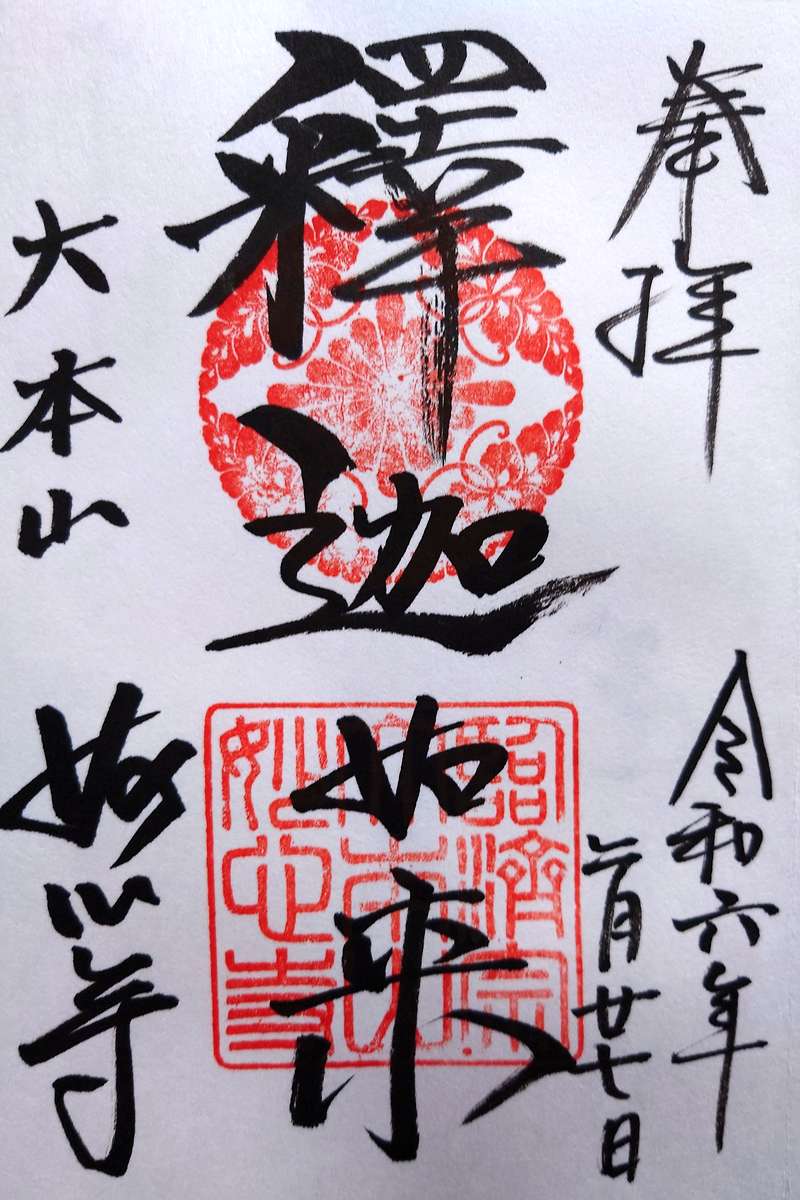 奉拝
令和六年
六月廿七日
釋迦如来
臨済宗
妙心寺
大本山
妙心寺